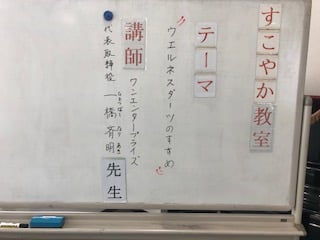 すこやか教室
テーマ
ウエルネスダーツのすすめ
講師
ワンエンタープライズ
代表取締役 一橋斉明 先生